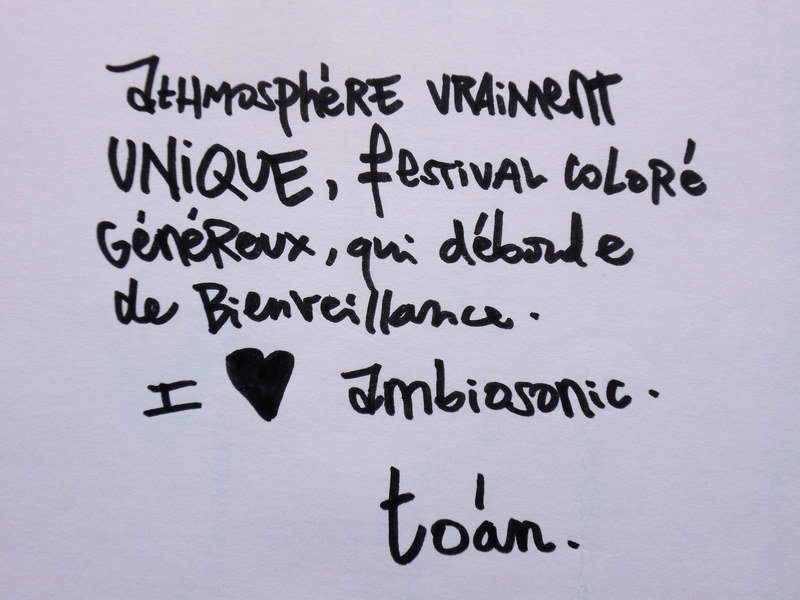 Athmosphère vraiment
unique, festival coloré
généreux, qui déborde
de Bienveillance.
I ♥ Ambiosonic.
toán.